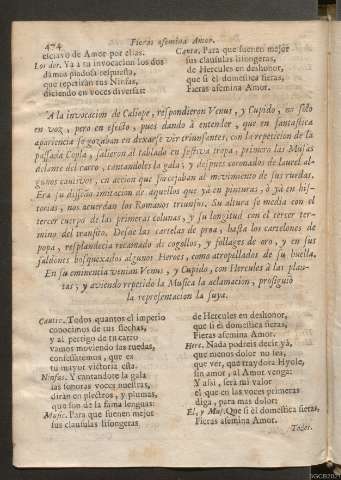 474 Fieras afemina Amor.
esclavo de Amor por ellas.
Los dos. Ya a tu invocacion los dos
damos piadosa respuesta,
que repetiràn tus Ninfas,
diciendo en voces diversas:
Canta. Para que suenen mejor
sus clausulas lisongeras,
de Hercules en deshonor,
que si èl domestica fieras,
Fieras afemina Amor.
A la invocacion de Caliope, respondieron Venus, y Cupido, no solo
en voz, pero en efecto, pues dando à entender, que en fantastica
apariencia se gozaban en dexarse vèr triunfantes, con la repeticion de la
passada Copla, salieron al tablado en festiva tropa, primero las Musas
delante del carro, cantandoles la gala, y despues coronados de laurel al-
gunos cautivos, en accion que forcejaban al movimiento de sus ruedas.
Era su diseño imitacion de aquellos que yà en pinturas, ò yà en his-
torias, nos acuerdan los Romanos triunfos. Su altura se media con el
tercer cuerpo de las primeras colunas, y su longitud con el tercer ter-
mino del transito. Desde las cartelas de proa, hasta los cartelones de
popa, resplandecia recamado de cogollos, y follages de oro, y en sus
faldones bosquexados algunos Heroes, como atropellados de su huella.
En su eminencia venian Venus, y Cupido, con Hercules à las plan-
tas; y aviendo repetido la Musica la aclamacion, prosiguiò
la representacion la suya.
Cautiv. Todos quantos el imperio
conocimos de tus flechas,
y al pertigo de tu carro
vamos moviendo las ruedas,
confessamos, que es
tu mayor victoria esta.
Ninfas. Y cantandote la gala
las sonoras voces nuestras,
diràn en plectros, y plumas,
que son de la fama lenguas:
Music. Para que suenen mejor
sus clausulas lisongeras
de Hercules en deshonor,
que si èl domestica fieras,
Fieras afemina Amor.
Herc. Nada podreis decir yà,
que menos dolor no sea,
que vèr, que traydora Hyole,
sin amor, al Amor venga:
Y assi, serà mi valor
el que en las voces primeras
diga, para mas dolor:
El, y Mus. Que si èl domestica fieras,
Fieras afemina Amor.
Todos.